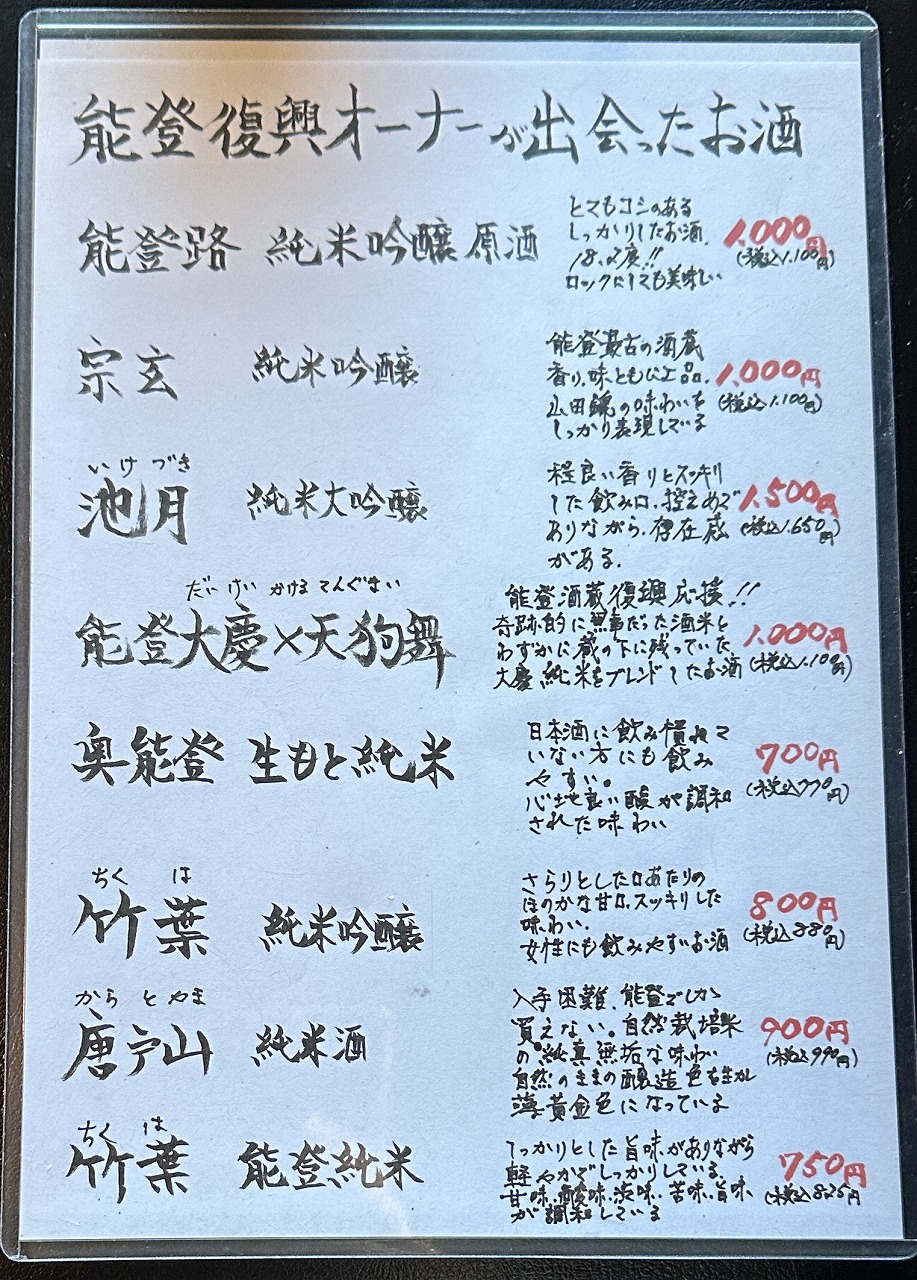 能登復興オーナーが出会ったお酒
能登路 純米吟醸原酒
とてもコシのある
しっかりしたお酒.
18.2度!!
ロックにしても美味しい
1.000円
(税込1.100円)
宗玄 純米吟醸
能登最古の酒蔵
香り.味ともに上品.
山田錦の味わいを
しっかり表現している
1.000円
(税込1.100円)
いけづき
池月 純米大吟醸
程良い香りとスッキリ
した飲み口.控えめで
ありながら.存在感
がある.
1.500円
(税込1.650円)
だいけい かける てんぐまい
能登大慶×天狗舞
能登酒蔵復興応援!!
奇跡的に無事だった酒米と
わずかに蔵の下に残っていた
大慶 純米をブレンドしたお酒
1.000円
(税込1.100円)
奥能登 生もと純米
日本酒に飲み慣れて
いない方にも飲み
やすい。
心地良い酸が調和
された味わい
700円
(税込770円)
ちく は
竹葉 純米吟醸
さらりとした口あたりの
ほのかな甘口.スッキリした
味わい.
女性にも飲みやすいお酒
800円
(税込880円)
から と やま
唐戸山 純米酒
入手困難.能登でしか
買えない。自然栽培米
の純真無垢な味わい
自然のままの醸造色を生かし
薄黄金色になっている
900円
(税込990円)
ちく は
竹葉 能登純米
しっかりとした旨味がありながら
軽やかでしっかりしている.
甘味.酸味.渋味.苦味.旨味
が調和している
750円
(税込825円